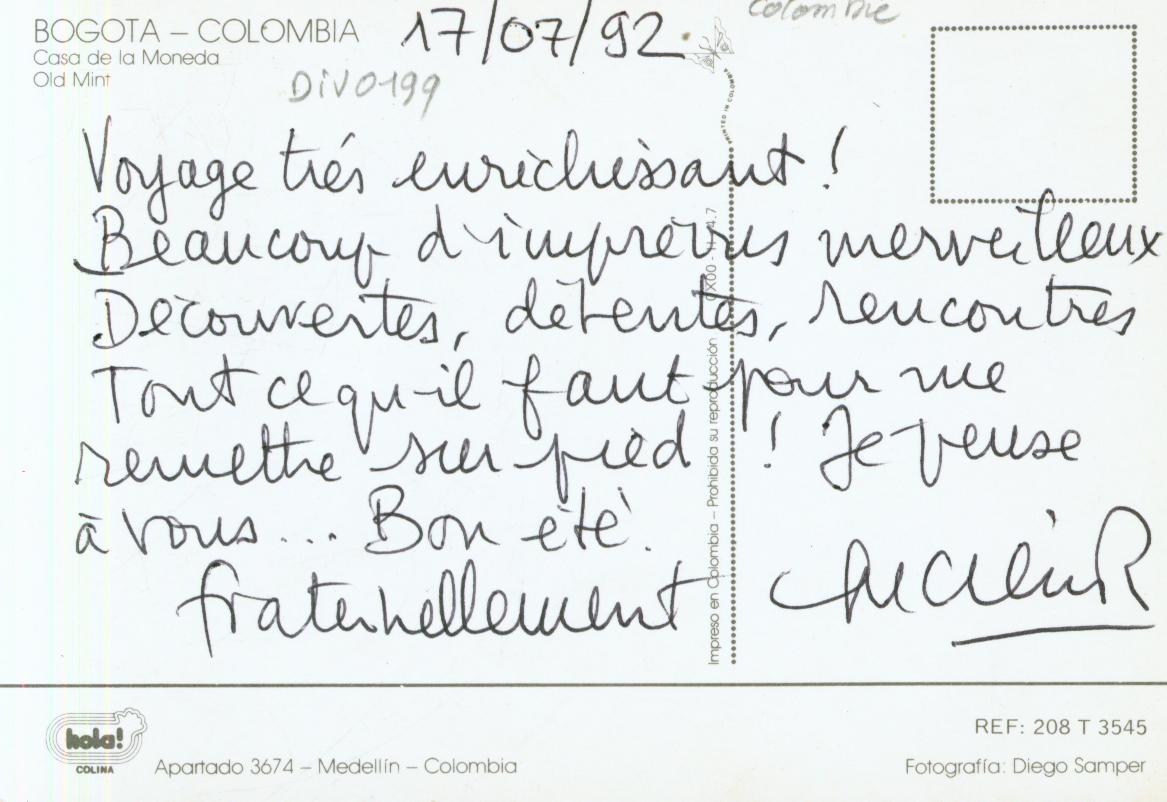 BOGOTA – COLOMBIA
Casa de la Moneda
Old Mint
17/07/92
Colombie
DIV0199
PRINTED IN COLOMBIA
Voyage trés enrichissant !
Beaucoup d'imprévus merveilleux
Découvertes, détentes, rencontres
Tout ce qu-il faut pour me
remettre sur pied ! Je pense
à vous... Bon été.
fraternellement
Impreso en Colombia – Prohibida su reproducción
hola!
COLINA
Apartado 3674 – Medellín – Colombia
REF: 208 T 3545
Fotografía: Diego Samper